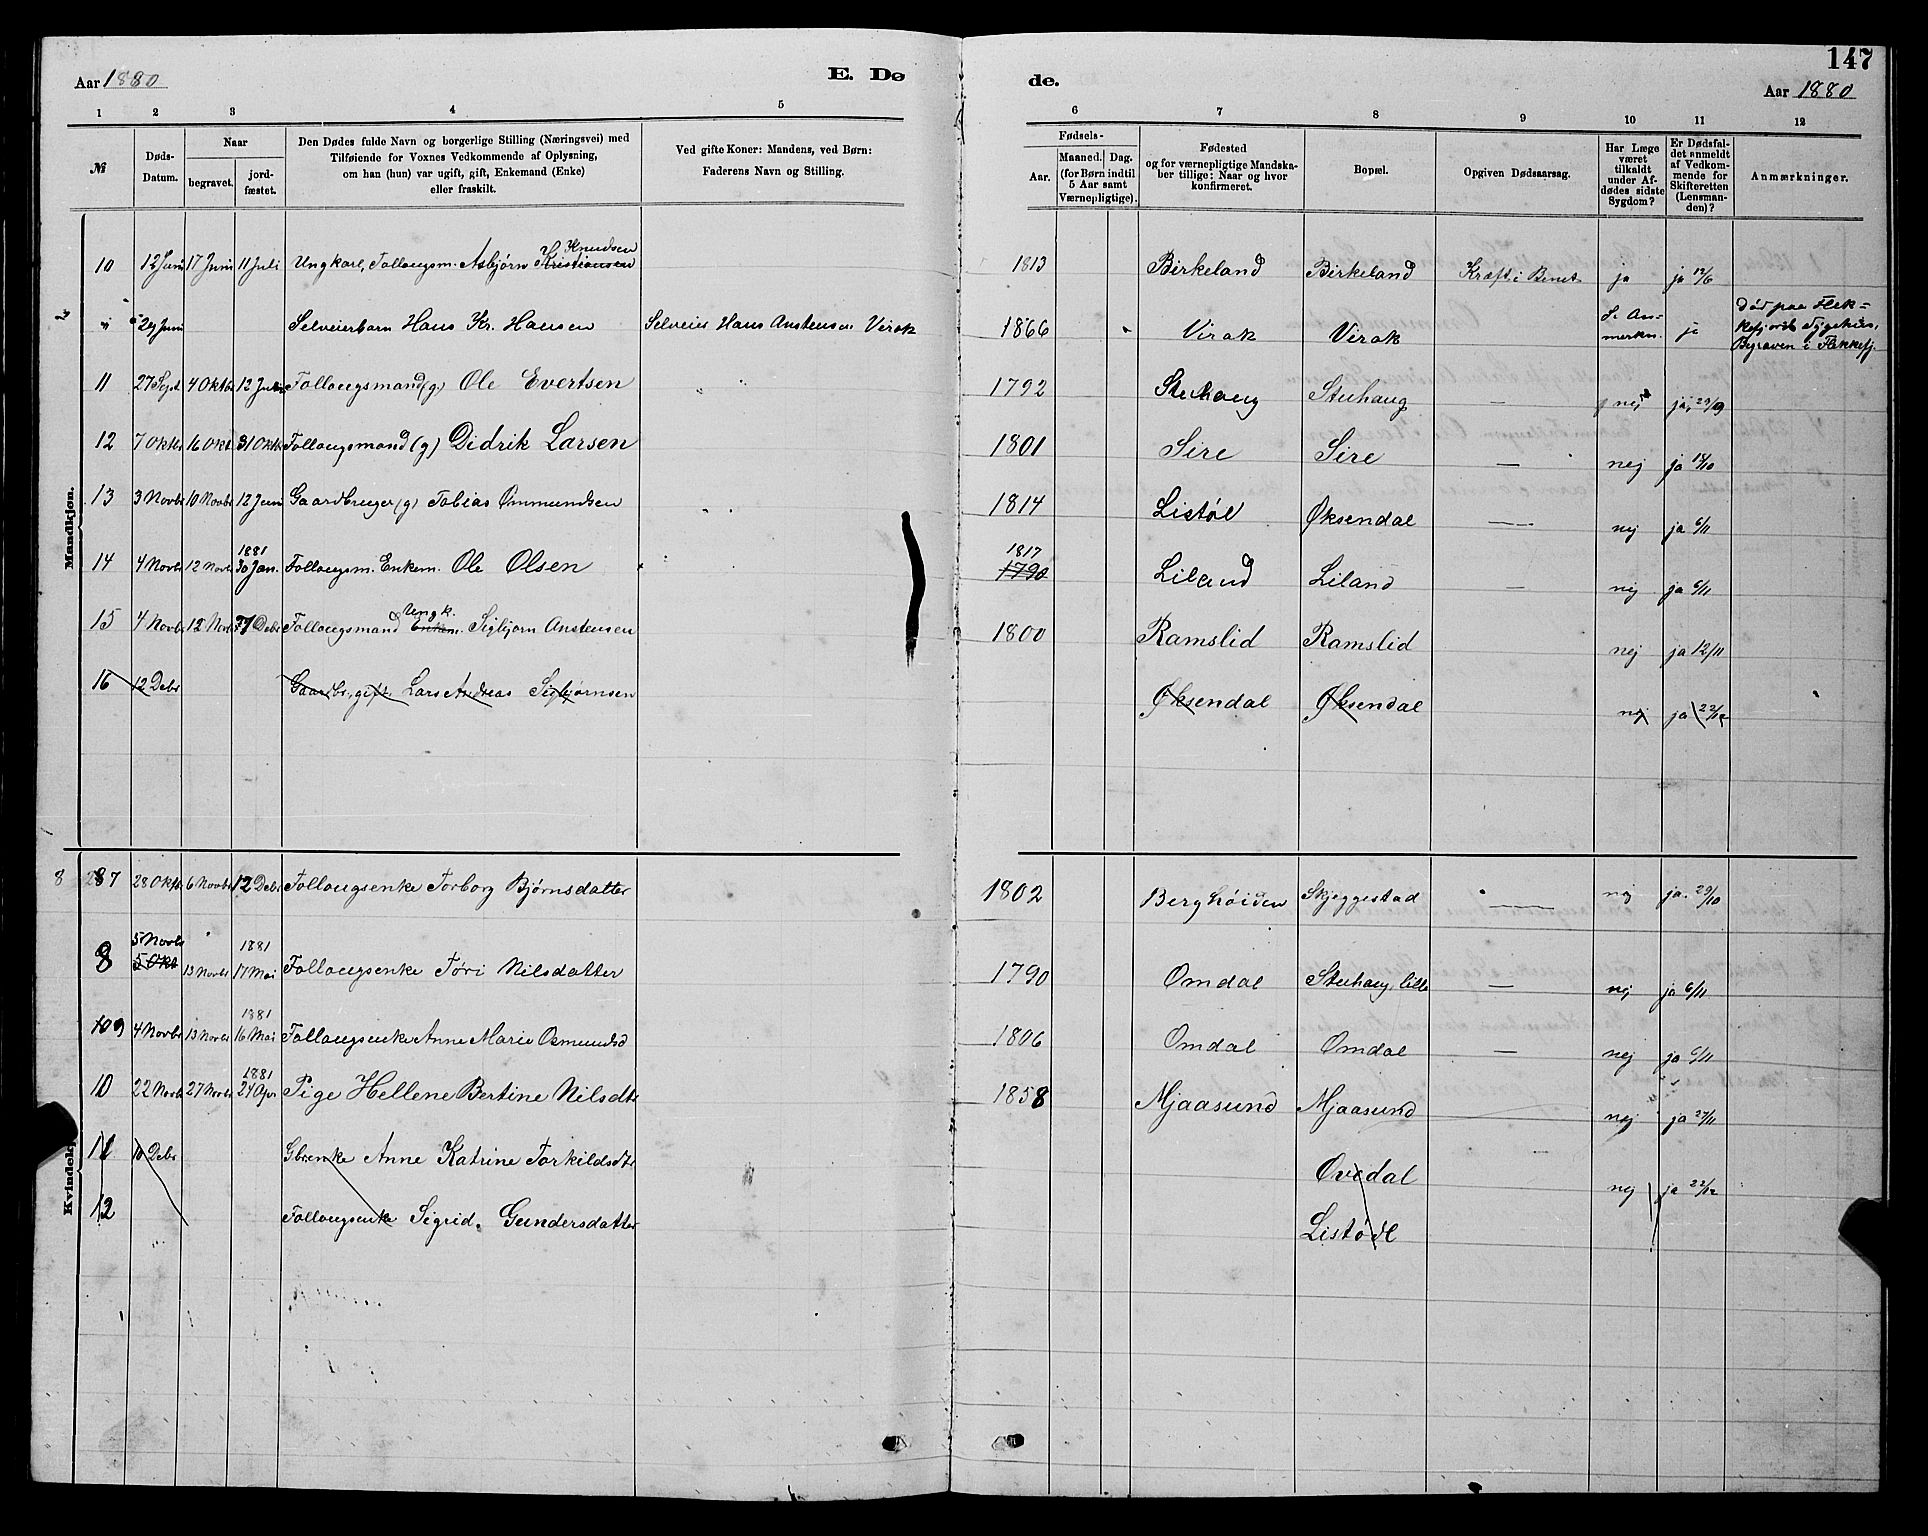 147
Aar 1880 E. Dø de. Aar 1880
1 2 3 4 5 6 7 8 9 10 11 12
№
Døds-Datum.
Naar
begravet.
jord-fæstet.
Den Dødes fulde Navn og borgerlige Stilling (Næringsvei) med
Tilføiende for Voxnes Vedkommende af Oplysning,
om han (hun) var ugift, gift, Enkemand (Enke)
eller fraskilt.
Ved gifte Koner: Mandens, ved Børn:
Faderens Navn og Stilling.
Fødsels-
Aar.
Maaned. Dag.
(for Børn indtil
5 Aar samt
Værnepligtige).
Fødested
og for værnepligtige Mandska-
ber tillige: Naar og hvor
konfirmeret.
Bopæl.
Opgiven Dødsaarsag.
Har Læge
været
tilkaldt
under Af-
dødes sidste
Sygdom?
Er Dødsfal-
det anmeldt
af Vedkom-
mende for
Skifteretten
(Lensman-
den)?
Anmærkninger.
Mandkjøn.
10 12 Juni 17 Juni 11 Juli Ungkarl, Follaugsm. Asbjørn Kristiansen Knudsen 1813 Birkeland Birkeland Kræft i Benet ja ja 12/6
29 Juni Selveierbarn Hans Kr. Hansen Selveier Hans Anstensen Virak 1866 Virak Virak Se An-
merkn. ja Død paa Flek-
kefjords Sygehus,
Begraven i Flekkefj.
11 27 Sept 4 Oktb 12 Follaugsmand (g) Ole Evertsen 1792 Stuhaug Stuhaug — nej ja, 29/9
12 7 Oktb 16 Okt 31 Oktb Follaugsmand (g) Didrik Larsen 1801 Sire Sire — nej ja 18/10
13 3 Novbr 10 Novbr 12 Juni Gaardbruger (g) Tobias Ommundsen 1814 Listøl Øksendal — nej ja 6/11
14 4 Novbr 12 Novbr 1881 30 Jan. Follaugsm. Enkem. Ole Olsen 1817 1790 Liland Liland — nej ja 6/11
15 4 Novbr 12 Novbr Debr Follaugsmand Enkem. Ungk. Sigbjørn Anstensen 1800 Ramslid Ramslid nej ja 12/11
16 12 Debr Gaardbr, gift, Lars Andreas Sigbjørnsen Øksendal Øksendal nej ja 22/12
Kvindekj
8 7 28 Oktb 6 Novbr 12 Debr Follaugsenke Torborg Bjørnsdatter 1802 Berghøiden Skjeggestad — nej ja. 29/10
8 5 Novbr 5 Okt 13 Novbr 1881 17 Mai Follaugsenke Tøri Nilsdatter 1790 Omdal Stuhaug, lille — nej ja 6/11
10 9 4 Novbr 13 Novbr 1881 16 Mai Follaugsenke Anne Marie Osmundsd 1806 Omdal Omdal — nej ja 6/11
10 22 Novbr 27 Novbr 1881 24 Apr Pige Hellene Bertine Nilsdtr 1858 Mjaasund Mjaasund nej ja 27/11
11 10 Debr Gbrenke Anne Katrine Torkildsdtr Ovedal nej ja 22/12
12 Follaugsenke Sigrid Gundersdatter Listøl